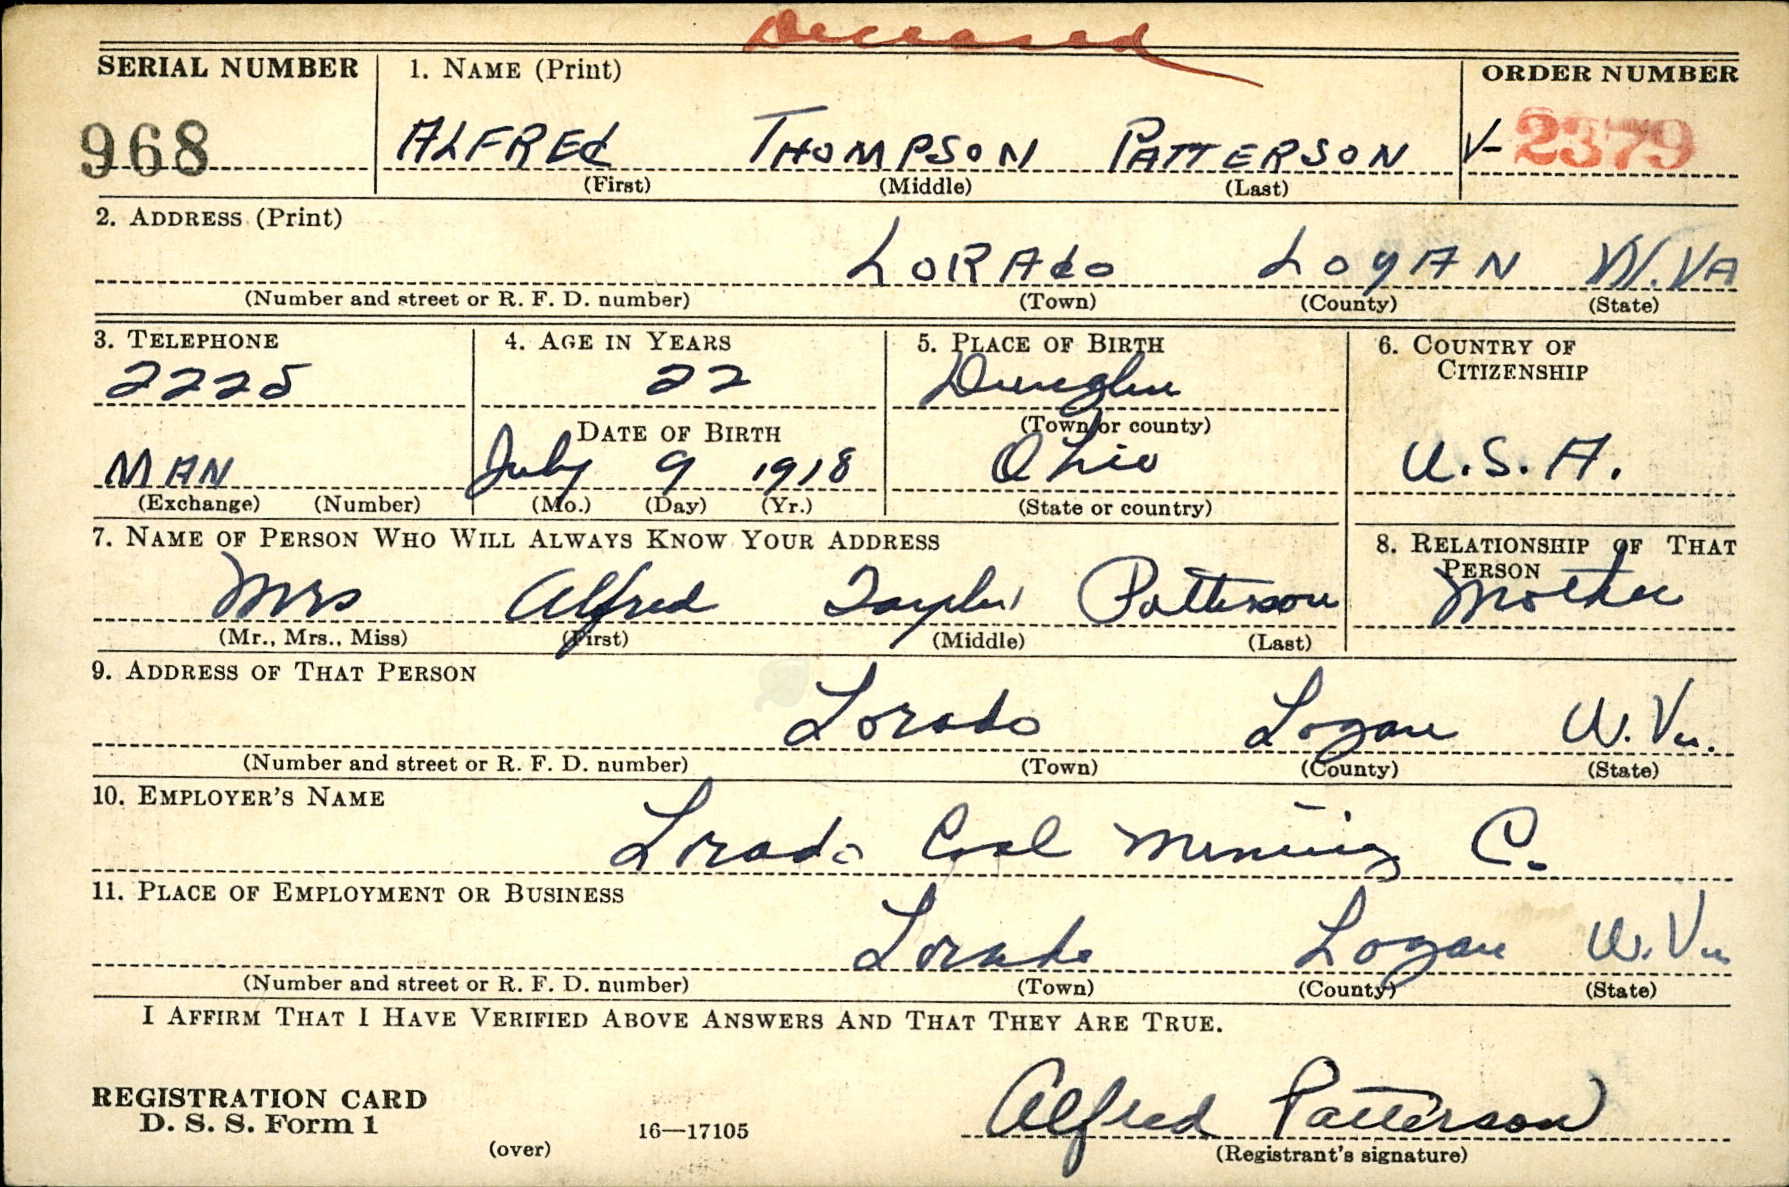 Deceased
SERIAL NUMBER 1. NAME (Print) ORDER NUMBER
968 ALFREd THOMPSON PATTERSON V- 2379
(First) (Middle) (Last)
2. ADDRESS (Print)
LORAdo LogAN W.VA
(Number and street or R. F. D. number) (Town) (County) (State)
3. TELEPHONE 4. AGE IN YEARS 5. PLACE OF BIRTH 6. COUNTRY OF CITIZENSHIP
2225 22
DATE OF BIRTH (Town or county)
MAN July 9 1918 Ohio U.S.A.
(Exchange) (Number) (Mo.) (Day) (Yr.) (State or country)
7. NAME OF PERSON WHO WILL ALWAYS KNOW YOUR ADDRESS 8. RELATIONSHIP OF THAT PERSON
Mrs Alfred Taylor Patterson Mother
(Mr., Mrs., Miss) (First) (Middle) (Last)
9. ADDRESS OF THAT PERSON
Lorado Logan W. Va.
(Number and street or R. F. D. number) (Town) (County) (State)
10. EMPLOYER'S NAME
Lorado Coal Mining C.
11. PLACE OF EMPLOYMENT OR BUSINESS
Lorado Logan W. Va
(Number and street or R. F. D. number) (Town) (County) (State)
I AFFIRM THAT I HAVE VERIFIED ABOVE ANSWERS AND THAT THEY ARE TRUE.
REGISTRATION CARD
D. S. S. Form 1
(over) 16—17105
Alfred Patterson
(Registrant's signature)